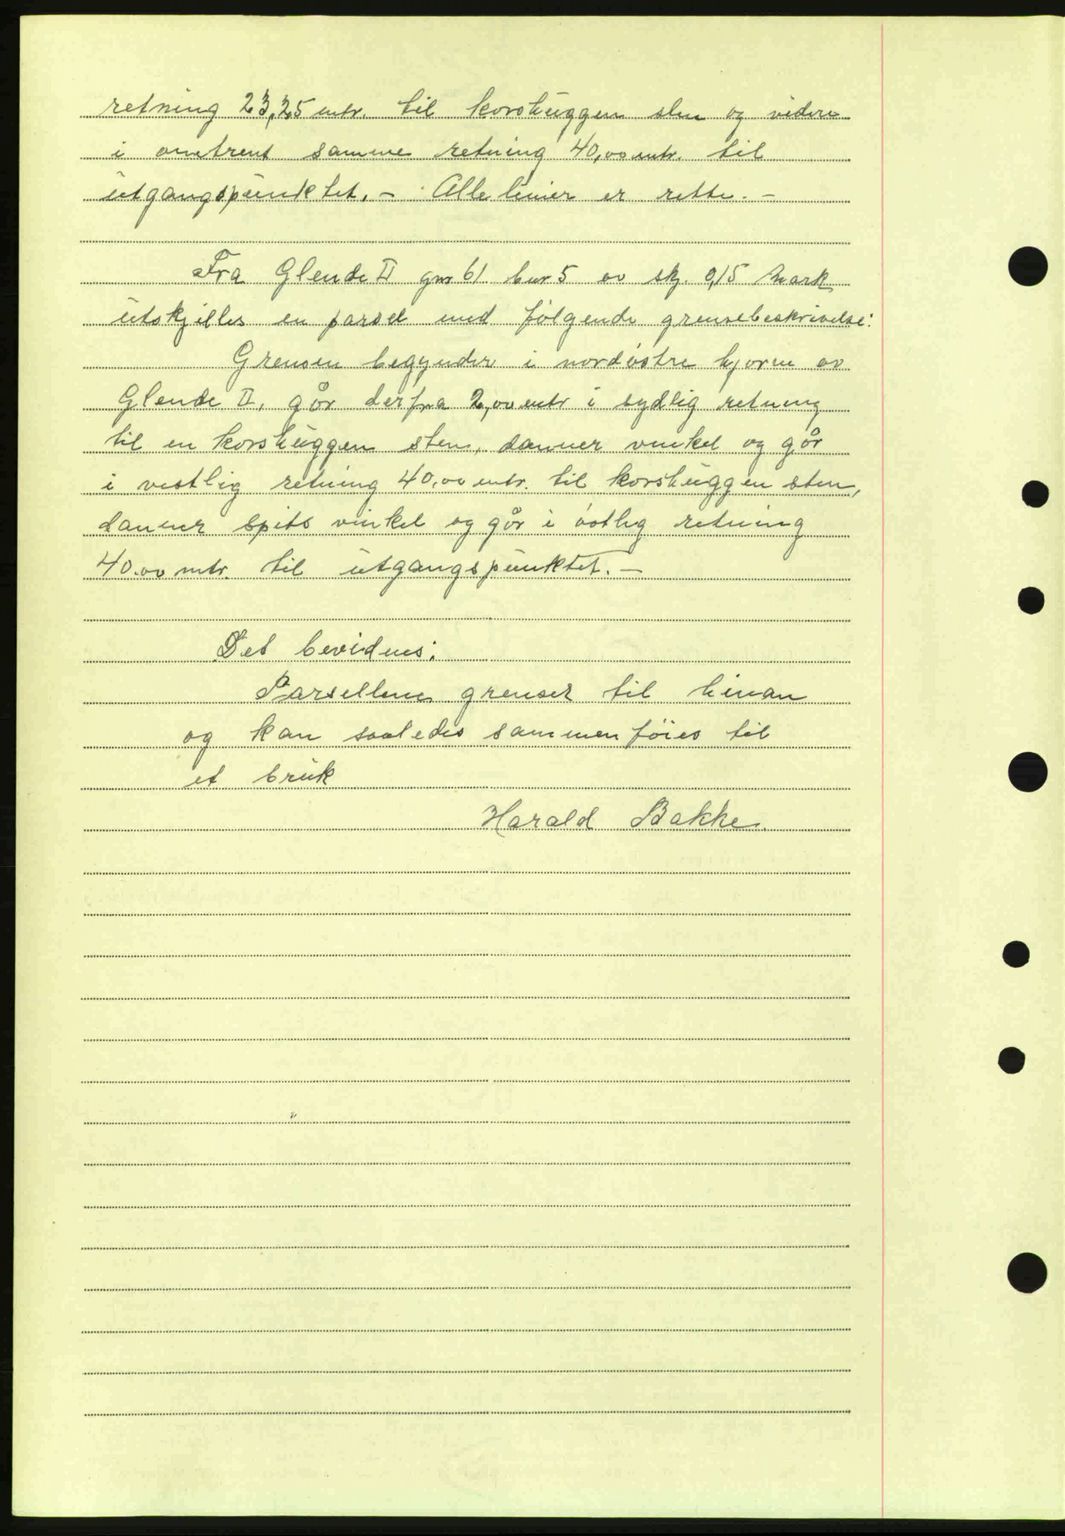 retning 23,25 mtr. til korshuggen sten og videre
i omtrent samme retning 40,00 mtr. til
utgangspunktet. – Alle linier er rette. –
Fra Glende II gnr 61 bnr 5 av skj. 0,15 mark
utskjilles en parsel med følgende grensebeskrivelse:
Grensen begynder i nordøstre hjørne av
Glende II, går derfra 2,00 mtr i sydlig retning
til en korshuggen sten, danner vinkel og går
i vestlig retning 40,00 mtr. til korshuggen sten,
danner spits vinkel og går i østlig retning
40.00 mtr. til utgangspunktet. –
Det bevidnes:
Parsellene grenser til hinan
og kan saaledes sammenføies til
et bruk
Harald Bakke.